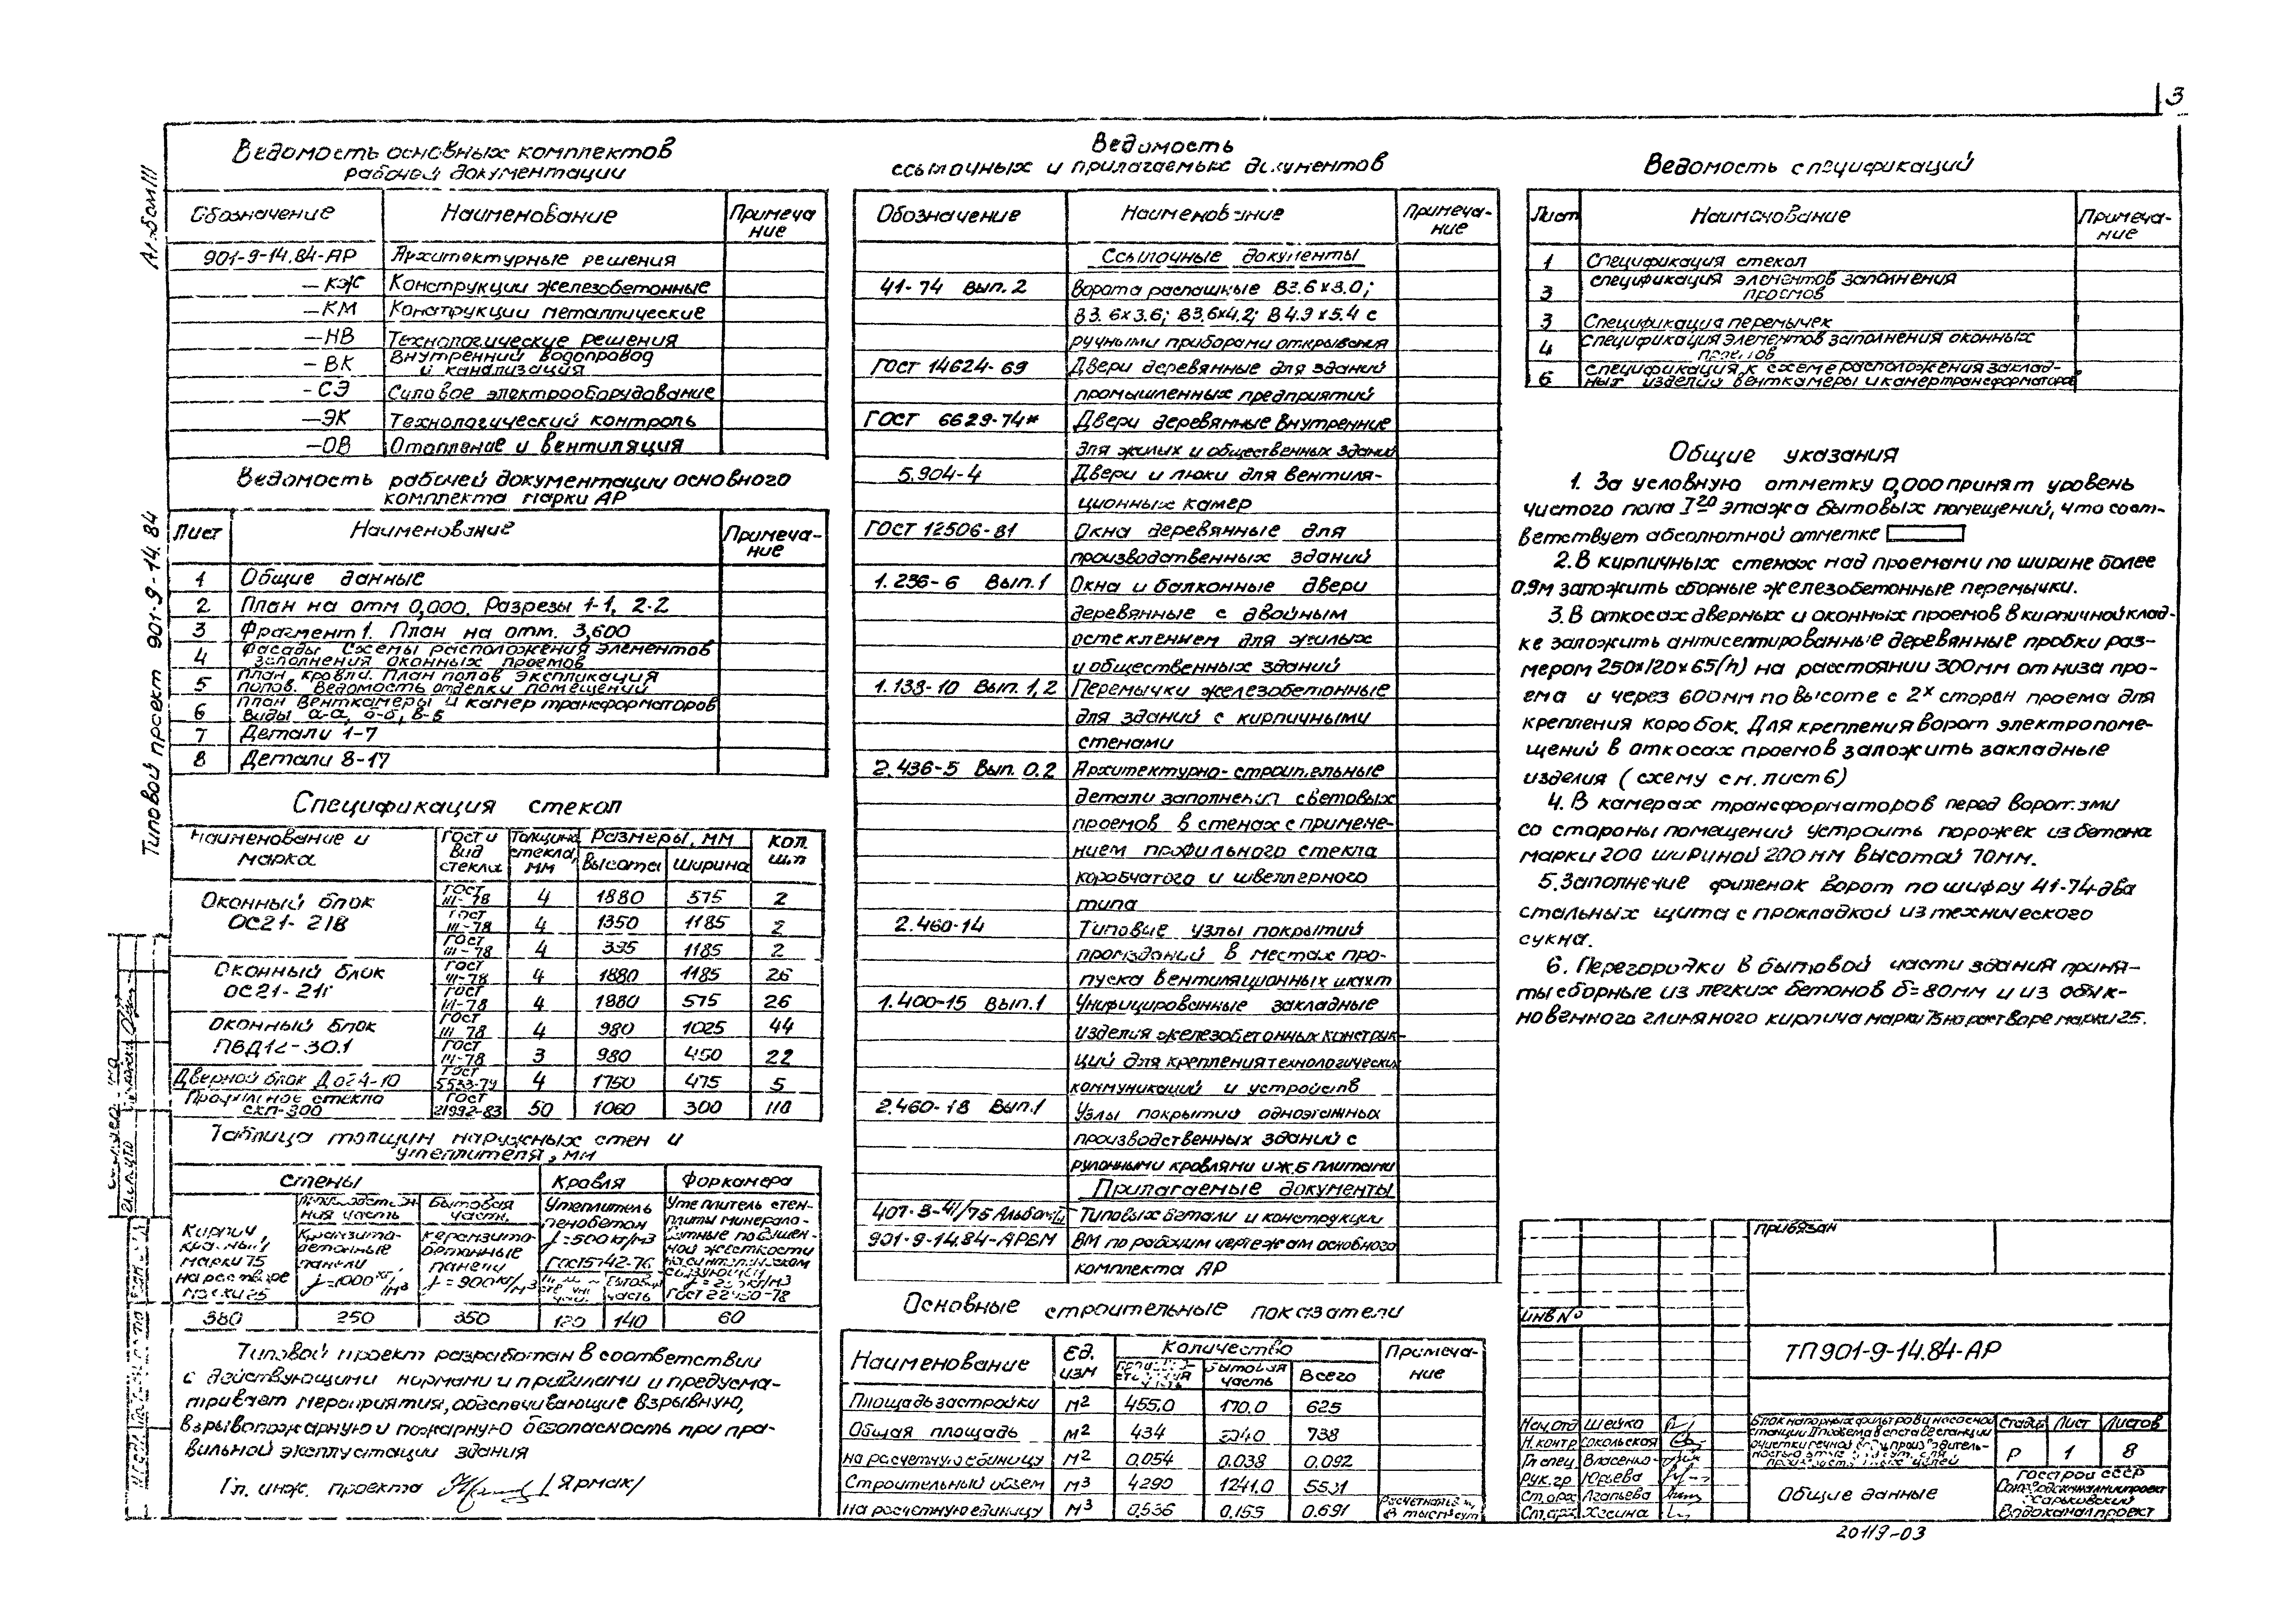 3
Альбом III
Типовой проект 901-9-14.84
Ведомость основных комплектов
рабочей документации
Обозначение Наименование Примеча
ние
901-9-14.84-АР Архитектурные решения
-КЖ Конструкции железобетонные
-КМ Конструкции металлические
-НВ Технологические решения
-ВК Внутренний водопровод
и канализация
-СЭ Силовое электрооборудование
-ЭК Технологический контроль
-ОВ Отопление и вентиляция
Ведомость рабочей документации основного
комплекта марки АР
Лист Наименование Примеча-
ние
1 Общие данные
2 План на отм 0,000. Разрезы 1-1, 2-2
3 Фрагмент 1. План на отм. 3,600
4 Фасады Схемы расположения элементов
заполнения оконных проемов
5 План кровли. План полов Экспликация
полов. Ведомость отделки помещений
6 План венткамеры и камер трансформаторов
Виды а-а, б-б, в-в
7 Детали 1-7
8 Детали 8-17
Спецификация стекол
Наименование и
марка
ГОСТ и
вид
стекла
Толщина
стекла,
мм
Размеры, мм
Высота Ширина
Кол.
шт
Оконный блок
ОС21-21В
ГОСТ
111-78 4 1880 575 2
ГОСТ
111-78 4 1350 1185 2
ГОСТ
111-78 4 395 1185 2
Оконный блок
ОС21-21Г
ГОСТ
111-78 4 1880 1185 26
ГОСТ
111-78 4 1880 575 26
Оконный блок
ПВД12-30.1
ГОСТ
111-78 4 980 1025 44
ГОСТ
111-78 3 980 450 22
Дверной блок ДО24-10 ГОСТ
5533-79 4 1750 475 5
Профильное стекло
СКП-300
ГОСТ
21992-83 50 1060 300 110
Таблица толщин наружных стен и
утеплителя, мм
Стены Кровля Форкамера
Кирпич,
красный,
марки 75
на растворе
марки 25
ния часть
Керамзито-
бетонные
панели
γ=1000 кг/м3
Бытовая
часть
керамзито-
бетонные
панели
γ=900 кг/м3
Утеплитель
пенобетон
γ=500 кг/м3
ГОСТ 5742-76
Бытовая
часть
Утеплитель стен-
плиты минерало-
ватные повышен-
ной жесткости
на синтетическом
связующем
ГОСТ 22950-78
380 250 350 120 140 60
Типовой проект разработан в соответствии
с действующими нормами и правилами и предусма-
тривает мероприятия, обеспечивающие взрывную,
взрывопожарную и пожарную безопасность при пра-
вильной эксплуатации здания
Гл. инж. проекта /Ярмак/
Ведомость
ссылочных и прилагаемых документов
Обозначение Наименование Примеча-
ние
Ссылочные документы
41-74 Вып. 2 Ворота распашные В3.6×3.0;
В3.6×3.6; В3.6×4.2; В4.9×5.4 с
ручными приборами открывания
ГОСТ 14624-69 Двери деревянные для зданий
промышленных предприятий
ГОСТ 6629-74* Двери деревянные внутренние
для жилых и общественных зданий
5.904-4 Двери и люки для вентиля-
ционных камер
ГОСТ 12506-81 Окна деревянные для
производственных зданий
1.236-6 Вып.1 Окна и балконные двери
деревянные с двойным
остеклением для жилых
и общественных зданий
1.138-10 Вып. 1, 2 Перемычки железобетонные
для зданий с кирпичными
стенами
2.436-5 Вып. 0.2 Архитектурно-строительные
детали заполнения световых
проемов в стенах с примене-
нием профильного стекла
коробчатого и швеллерного
типа
2.460-14 Типовые узлы покрытий
промзданий в местах про-
пуска вентиляционных шахт
1.400-15 Вып.1 Унифицированные закладные
изделия железобетонных конструк-
ций для крепления технологических
коммуникаций и устройств
2.460-18 Вып.1 Узлы покрытий одноэтажных
производственных зданий с
рулонными кровлями и ж.б плитами
Прилагаемые документы
407-3-41/75 Альбом Типовых детали и конструкции
901-9-14.84-АРВМ ВМ по рабочим чертежам основного
комплекта АР
Основные строительные показатели
Наименование Ед.
изм
Количество
Бытовая
часть
Всего
Примеча-
ние
Площадь застройки м2 455.0 170.0 625
Общая площадь м2 434 738
на расчетную единицу м2 0.054 0.038 0.092
Строительный объем м3 4290 1241.0 5531
на расчетную единицу м3 0.536 0.155 0.691
Ведомость спецификаций
Лист Наименование Примеча-
ние
1 Спецификация стекол
3 Спецификация элементов заполнения
проемов
3 Спецификация перемычек
4 Спецификация элементов заполнения оконных
проемов
6 Спецификация к схеме расположения заклад-
ных изделий венткамеры и камер трансформаторов
Общие указания
1. За условную отметку 0,000 принят уровень
чистого пола I го этажа бытовых помещений, что соот-
ветствует абсолютной отметке
2. В кирпичных стенах над проемами по ширине более
0.9м заложить сборные железобетонные перемычки.
3. В откосах дверных и оконных проемов в кирпичной клад-
ке заложить антисептированные деревянные пробки раз-
мером 250×120×65(h) на расстоянии 300мм от низа про-
ема и через 600мм по высоте с 2х сторон проема для
крепления коробок. Для крепления ворот электропоме-
щений в откосах проемов заложить закладные
изделия (схему см. лист 6)
4. В камерах трансформаторов перед воротами
со стороны помещений устроить порожек из бетона
марки 200 шириной 200мм высотой 70мм.
5. Заполнение филенок ворот по шифру 41-74-два
стальных щита с прокладкой из технического
сукна.
6. Перегородки в бытовой части здания приня-
ты сборные из легких бетонов δ=80мм и из обык-
новенного глиняного кирпича марки 75 на растворе марки 25.
Привязан
инв №
ТП901-9-14.84-АР
Нач.отд Шейко
Н.контр Сокольская
Гл.спец Власенко
Рук.гр Юрьева
Ст.арх Агапьева
Ст.арх Хесина
Блок напорных фильтров и насосной
станции II подъема в составе станции
Стадия Лист Листов
Р 1 8
Общие данные
Госстрой СССР
Союзводоканалниипроект
Харьковский
Водоканалпроект
20119-03